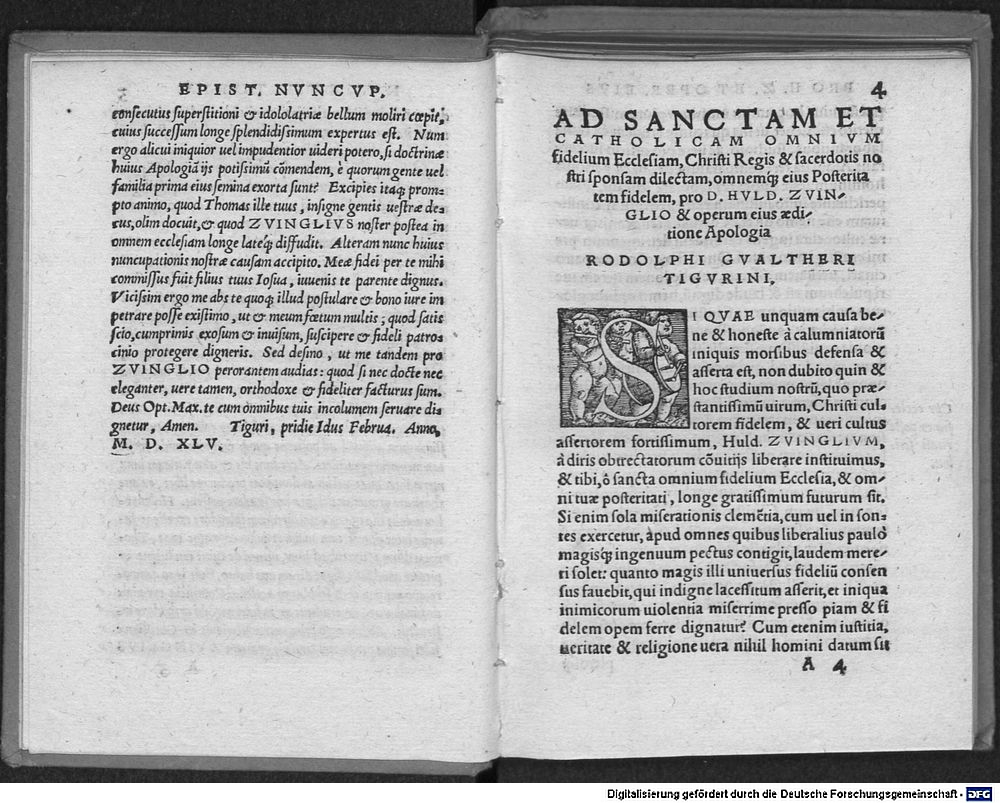 EPIST. NVNCVP.
consecutus superstitioni & idololatriæ bellum moliri cœpit,
cuius successum longe splendidissimum expertus est. Num
ergo alicui iniquior uel impudentior uideri potero, si doctrinæ
huius Apologiã ijs potissimũ cõmendem, è quorum gente uel
familia prima eius semina exorta sunt? Excipies itaq; prom-
pto animo, quod Thomas ille tuus, insigne gentis uestræ de-
cus, olim docuit, & quod ZVINGLIVS noster postea in
omnem ecclesiam longe lateq; diffudit. Alteram nunc huius
nuncupationis nostræ causam accipito. Meæ fidei per te mihi
commissus fuit filius tuus Iosua, iuuenis te parente dignus.
Vicissim ergo me abs te quoq; illud postulare & bono iure im
petrare posse existimo, ut & meum fœtum multis, quod satis
scio, cumprimis exosum & inuisum, suscipere & fideli patro-
cinio protegere digneris. Sed desino, ut me tandem pro
ZVINGLIO perorantem audias: quod si nec docte nec
eleganter, uere tamen, orthodoxe & fideliter facturus sum.
Deus Opt. Max. te cum omnibus tuis incolumem seruare di-
gnetur, Amen. Tiguri, pridie Idus Februa. Anno,
M. D. XLV.
4
AD SANCTAM ET
CATHOLICAM OMNIVM
fidelium Ecclesiam, Christi Regis & sacerdotis no
stri sponsam dilectam, omnemq; eius Posterita
tem fidelem, pro D. HVLD. ZVIN-
GLIO & operum eius ædi-
tione Apologia
RODOLPHI GVALTHERI
TIGVRINI.
SI QVAE unquam causa be-
ne & honeste à calumniatorũ
iniquis morsibus defensa &
asserta est, non dubito quin &
hoc studium nostrũ, quo præ-
stantissimũ uirum, Christi cul-
torem fidelem, & ueri cultus
assertorem fortissimum, Huld. ZVINGLIVM,
à diris obtrectatorum cõuitijs liberare instituimus,
& tibi, ô sancta omnium fidelium Ecclesia, & om-
ni tuæ posteritati, longe gratissimum futurum sit.
Si enim sola miserationis clemẽtia, cum uel in son-
tes exercetur, apud omnes quibus liberalius paulò
magisq; ingenuum pectus contigit, laudem mere-
ri solet: quanto magis illi uniuersus fideliũ consen
sus fauebit, qui indigne lacessitum asserit, et iniqua
inimicorum uiolentia miserrime presso piam & fi
delem opem ferre dignatur? Cum etenim iustitia,
ueritate & religione uera nihil homini datum sit
A 4
Digitalisierung gefördert durch die Deutsche Forschungsgemeinschaft - DFG